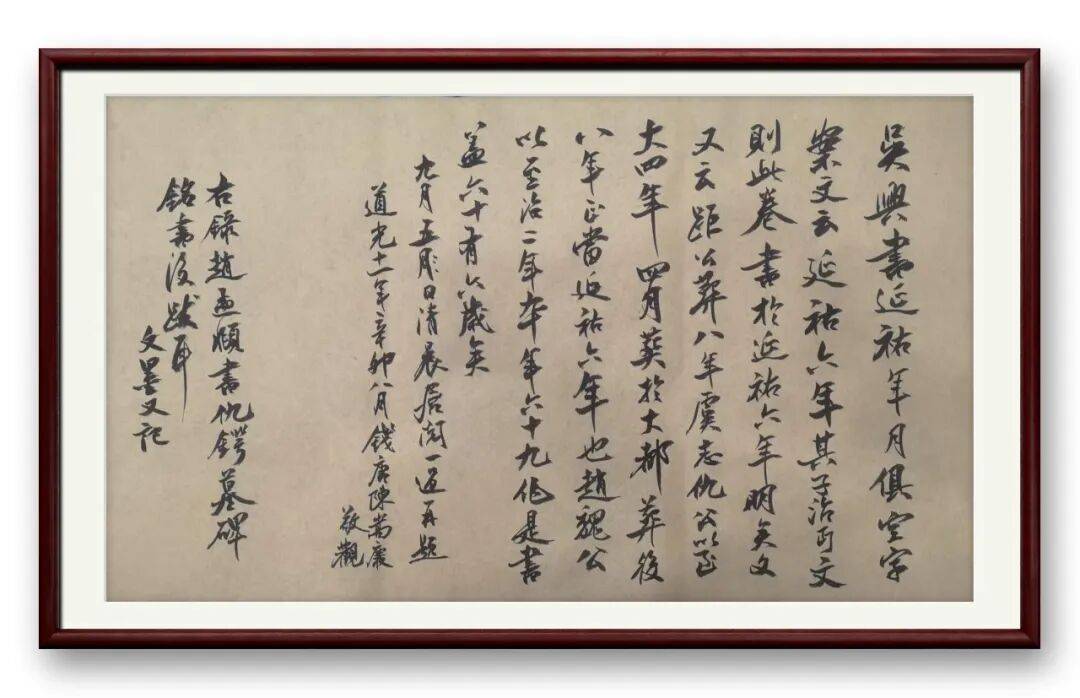 吳興書延祐年月俱空字
案文云延祐六年其子治丐文
則此卷書於延祐六年明矣文
又云距公葬八年虞志仇公以至
大四年四月葬於大都葬後
八年正當延祐六年也趙魏公
以至治二年卒年六十九作是書
蓋六十有六歲矣
九月五日清晨居閱一過再題
道光十一年辛卯八月錢唐陳嵩慶
敬觀
右錄趙孟頫書仇鍔墓碑
銘書後跋耳
文墨又記